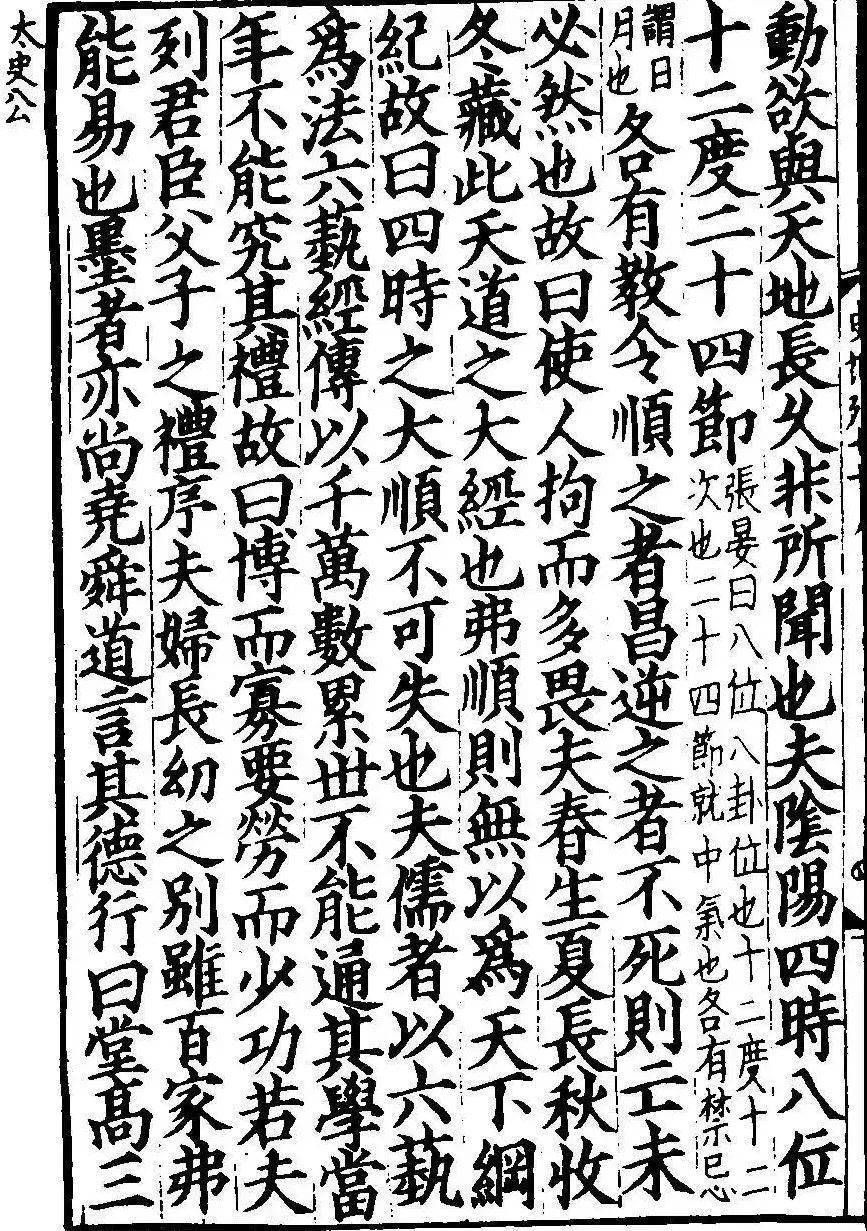 動欲與天地長久非所聞也夫隂陽四時八位
十二度二十四節張晏曰八位八卦位也十二度十二
次也二十四節就中氣也各有禁忌
謂日
月也
各有教令順之者昌逆之者不死則亡未
必然也故曰使人拘而多畏夫春生夏長秋收
冬藏此天道之大經也弗順則無以爲天下綱
紀故曰四時之大順不可失也夫儒者以六藝
爲法六藝經傳以千萬數累世不能通其學當
年不能究其禮故曰博而寡要勞而少功若夫
列君臣父子之禮序夫婦長幼之別雖百家弗
能易也墨者亦尚堯舜道言其德行曰堂髙三
太史公